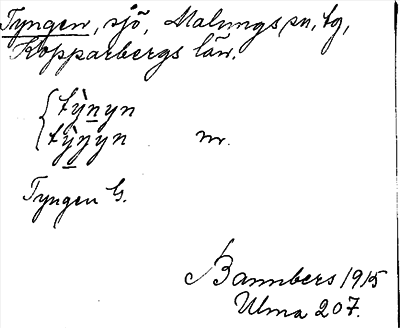 Tyngen, sjö, Malungs sn, tg,
Kopparbergs län.
tỳnyn
tỳŋyn nr.
Tyngen G.
Bannbers 1915
Ulma 207.